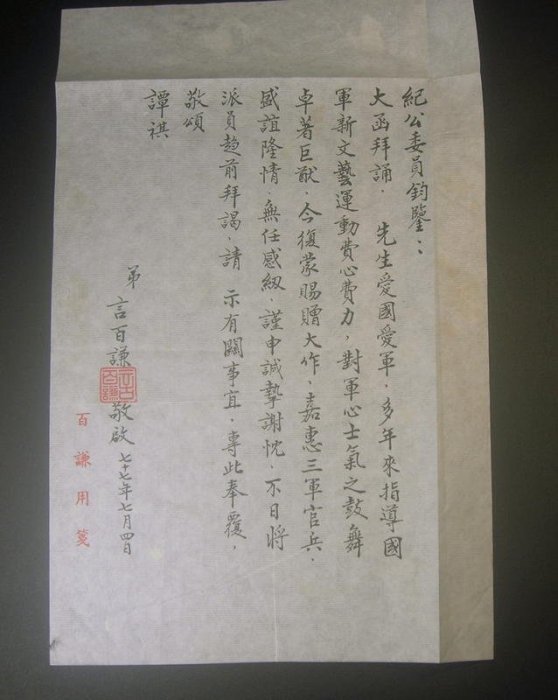 紀公委員鈞鑒：
大函拜誦． 先生愛國愛軍．多年來指導國
軍新文藝運動費心費力，對軍心士氣之鼓舞
卓著巨猷．今復蒙賜贈大作，嘉惠三軍官兵．
盛誼隆情．無任感紉．謹申誠摯謝忱．不日將
派員趨前拜謁，請 示有關事宜．專此奉覆，
敬頌
譚祺
弟 言百謙 敬啟 七十七年七月四日
言百謙
百謙用箋